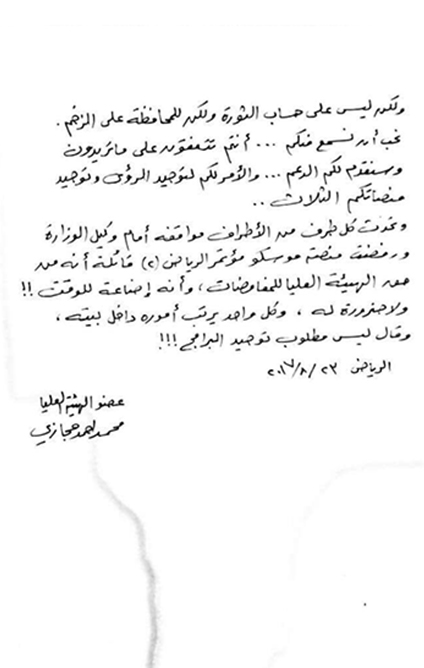 ولكن ليس على حساب الثورة ولكن للمحافظة على الزخم.
نحب أن نسمع منكم ... أنتم تتفقون على ما تريدون
وسنقدم لكم الدعم ... والأمر لكم لتوحيد الرؤى وتوحيد
منصاتكم الثلاث ..
وتحدث كل طرف من الأطراف مواقفه أمام وكيل الوزارة
ورفضت منصة موسكو مؤتمر الرياض (٢) قائلة أنه من
حق الهيئة العليا للمفاوضات، وأنه إضاعة للوقت !!
ولا ضرورة له ، وكل واحد يرتب أموره داخل بيته ،
وقال ليس مطلوب توحيد البرامج !!!
الرياض ٢٣/٨/٢٠١٧
عضو الهيئة العليا
محمد أحمد حجازي